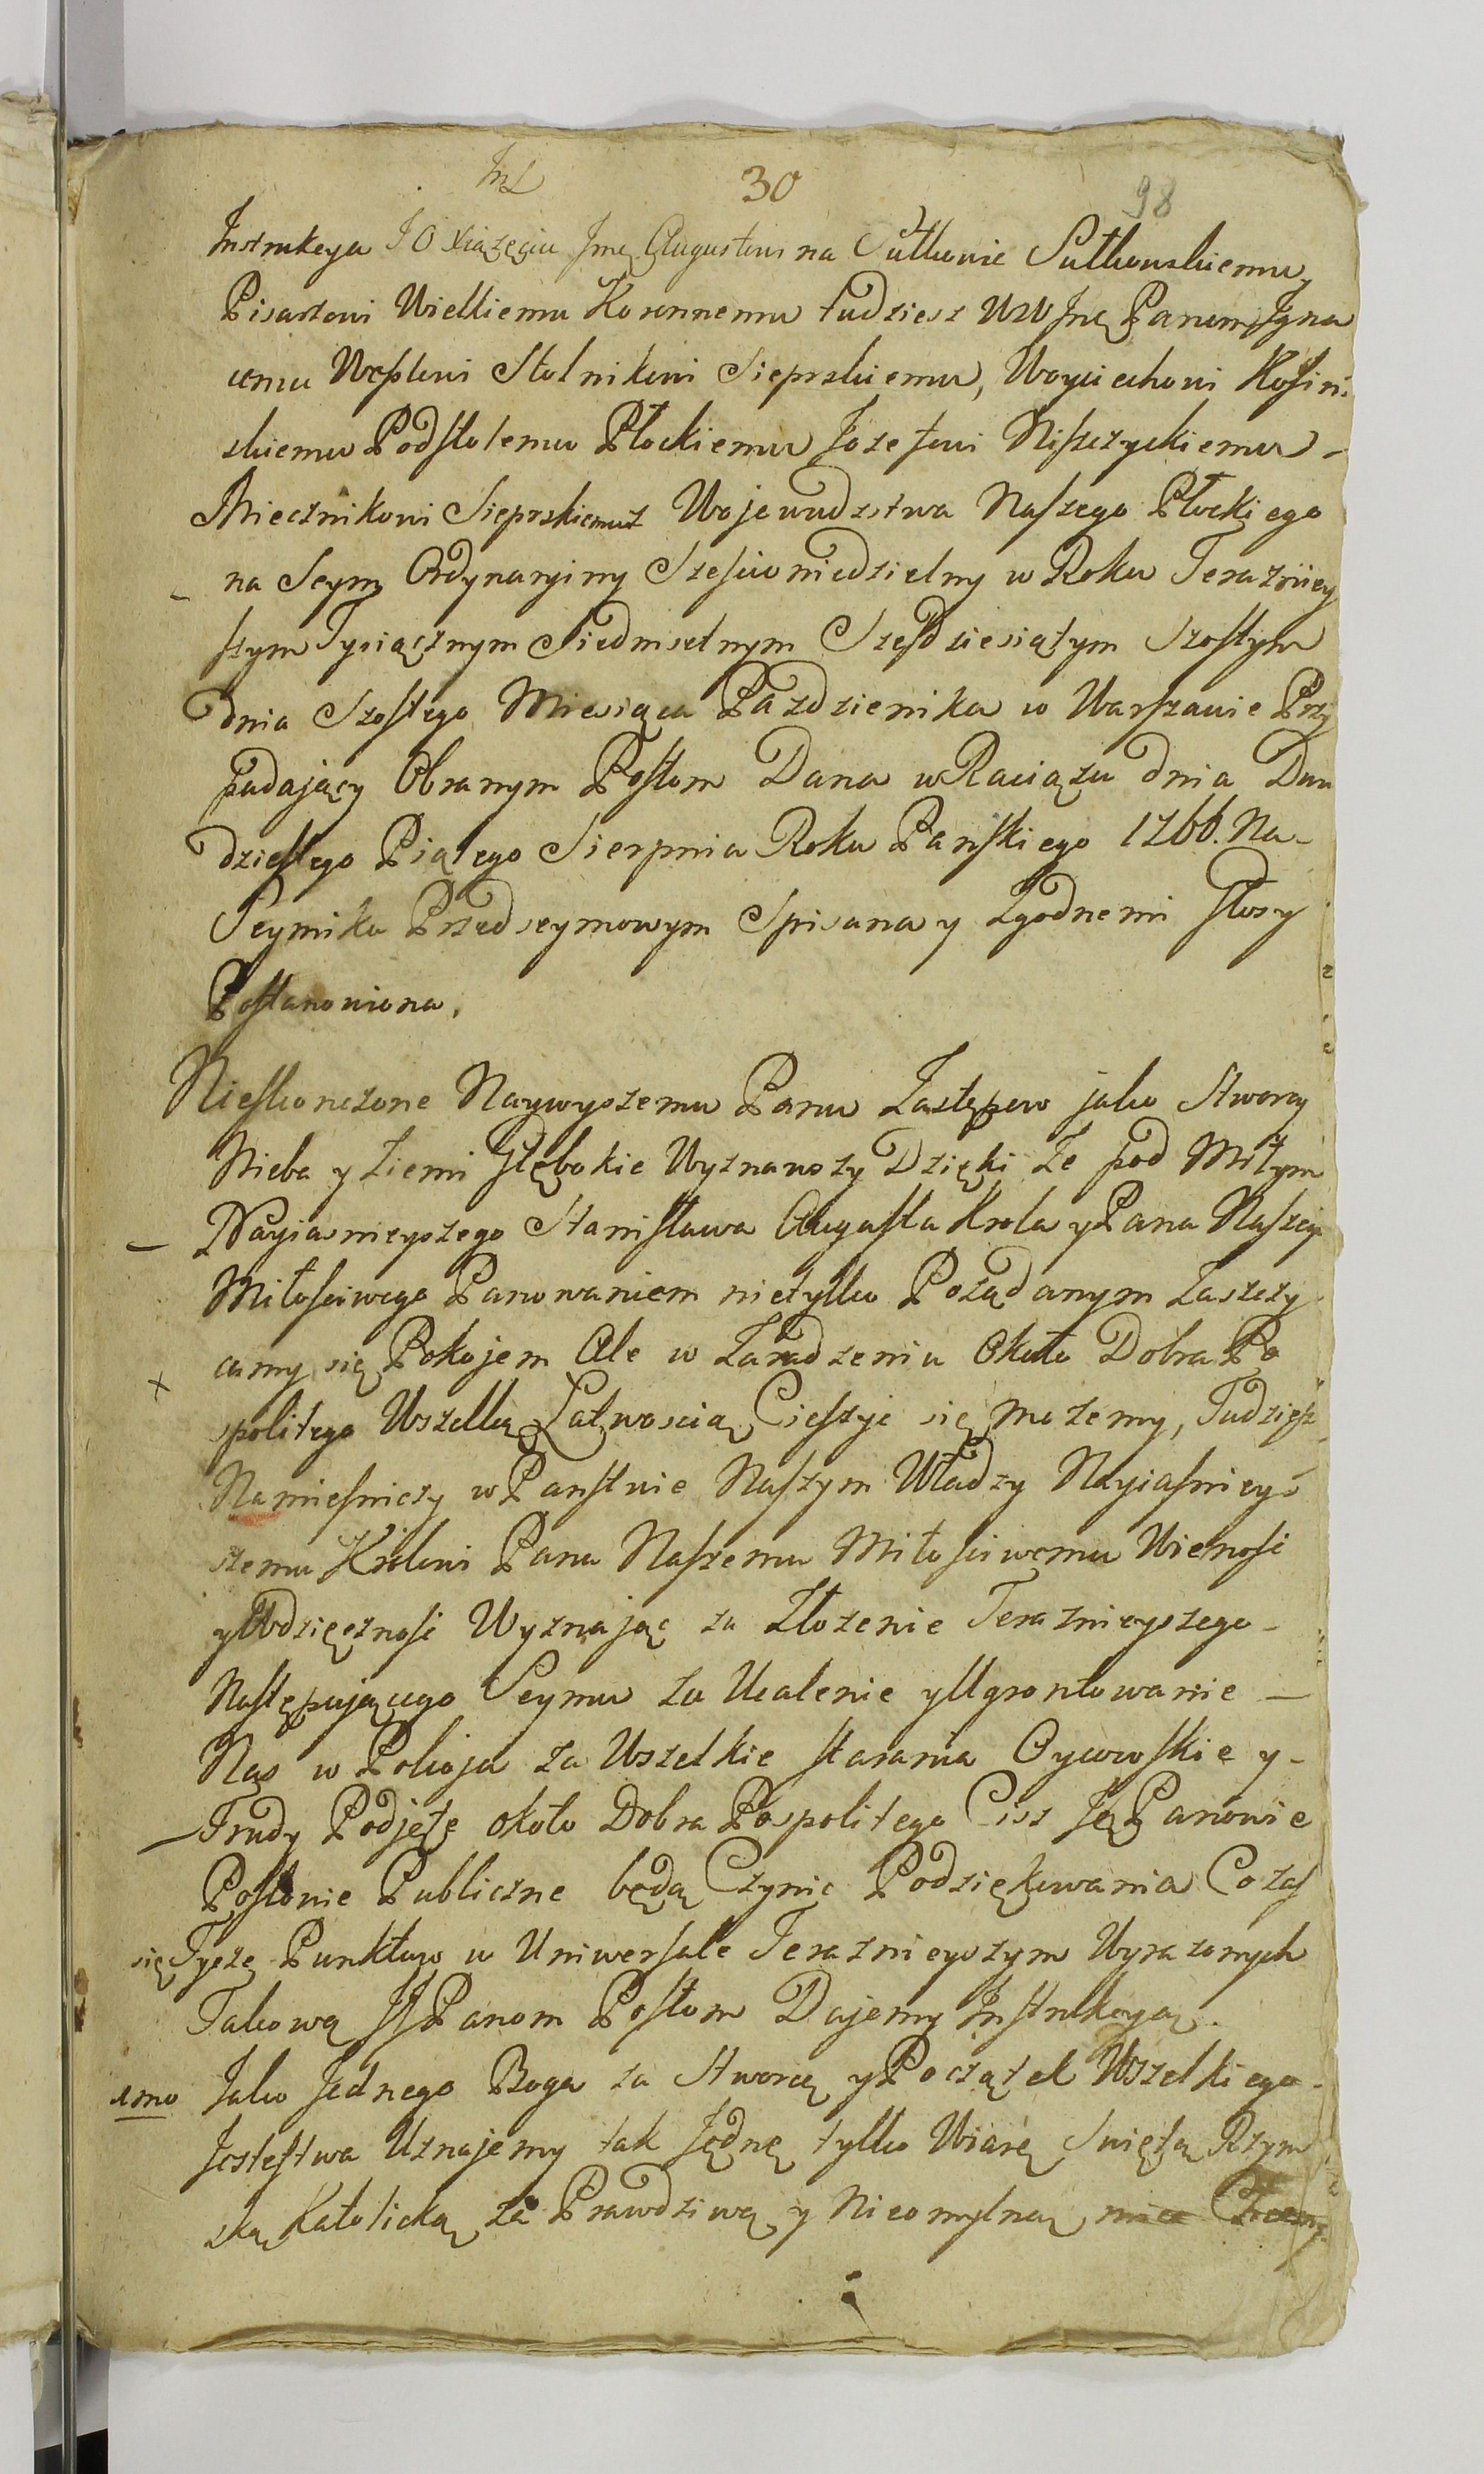 30
98
Instrukcya J O Xiążęciu Jmę Augustowi na Sułkowie Sułkowskiemu
Pisarzowi Wielkiemu Koronnemu tudziesz WW Jnę Panom Igna
cemu Wesslowi Stolnikowi Sieprskiemu, Woyciechowi Kosiń-
skiemu Podstolemu Płockiemu Jozefowi Niszczyckiemu -
Miecznikowi Sieprskiemu z Wojewudzstwa Naszego Płockiego
na Seym Ordynaryiny Sześcioniedzielny w Roku Teraźniey
szym Tysiącznym Siedmsetnym Sześdziesiątym Szostym
dnia Szostego Miesiąca Pazdziernika w Warszawie Przy
padający Obranym Posłom Dana w Raciążu dnia Dwu
dziestego Piątego Sierpnia Roku Pańskiego 1766. Na-
Seymiku Przedseymowym Spisana y Zgodnemi Głosy
Postanowiona.
Nieskonczone Naywyższemu Panu Zastępow jako Stworcy
Nieba y Ziemi Głębokie Wyznawszy Dzięki Ze pod Miłym
Nayiasnieyszego Stanisława Augusta Krola y Pana Naszeg
Miłościwego Panowaniem nietylko Pożądanym Zaszczy
camy się Pokojem Ale w Zaradzeniu Około Dobra Po
spolitego Wszelką Łatwoscią Cieszyc się możemy, Tudziesz
Namiesniczy w Panstwie Naszym Władzy Nayiasniey-
szemu Krolowi Panu Naszemu Miłościwemu Wiernosc
y Wdzięcznosc Wyznając za Złozenie Teraznieyszego -
Następującego Seymu za Ucalenie y Ugrontowanie -
Nas w Pokoju za Wszelkie starania Oycowskie y -
Trudy Podjęte około Dobra Pospolitego Ciż Ję Panowie
Posłowie Publiczne będą Czynic Podziękowania Co zas
się Tycze Punktow w Uniwersale Teraznieyszym Wyrazonych
Takową JJ Panom Posłom Dajemy Instrukcyą.
1mo Jako Jednego Boga za Stworcę y Początek Wszelkiego -
Jestestwa Uznajemy tak Jędnę tylko Wiarę Swiętą Rzym
ską Katolicką za Prawdziwą y Nieomylną